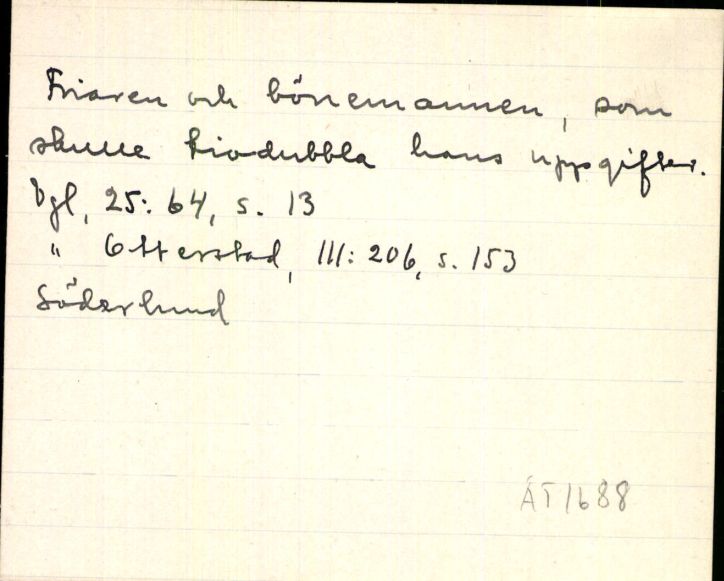 Friaren och bönemannen, som
skulle tiodubbla hans uppgifter.
Vgl, 25: 64, s. 13
" Otterstad, III: 206, s. 153
Söderlund
ÄT 1688